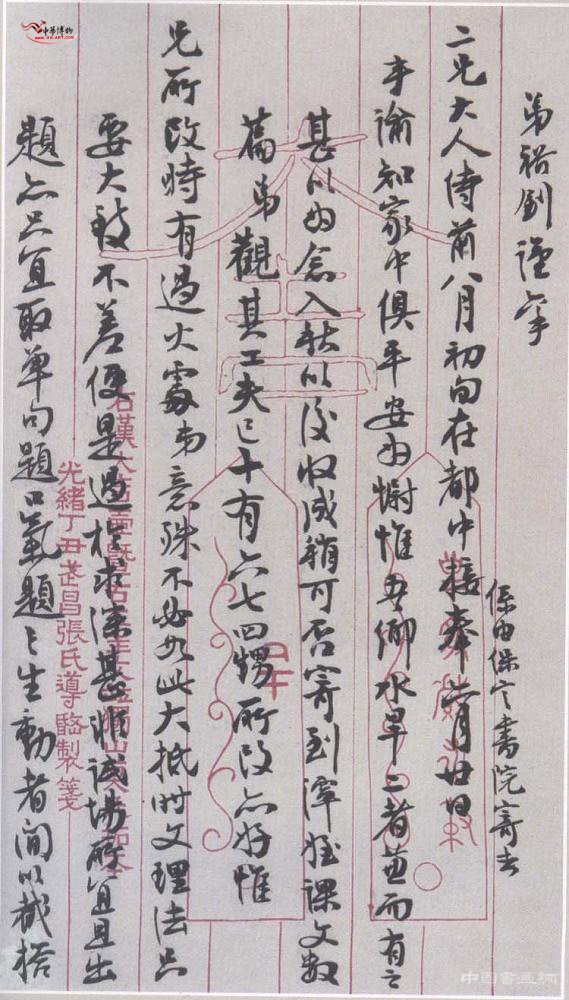 弟裕釗謹肅
二兄大人侍前八月初旬在都中接奉六月廿日
係由保定書院寄去
手諭知家中俱平安為慰惟吾鄉水旱二者並而有之
甚以為念入秋以後收成稍可否寄到澤姪課文數
篇弟觀其工夫已十有六七四甥所改亦好惟
兄所改時有過火處弟意殊不必如此大抵時文理法只
要大致不差便是過求深甚非試場所宜且出
題亦只宜取單句題口氣題之生動者間以截搭
光緒丁丑武昌張氏導騐製箋
中華博物
中国書画網